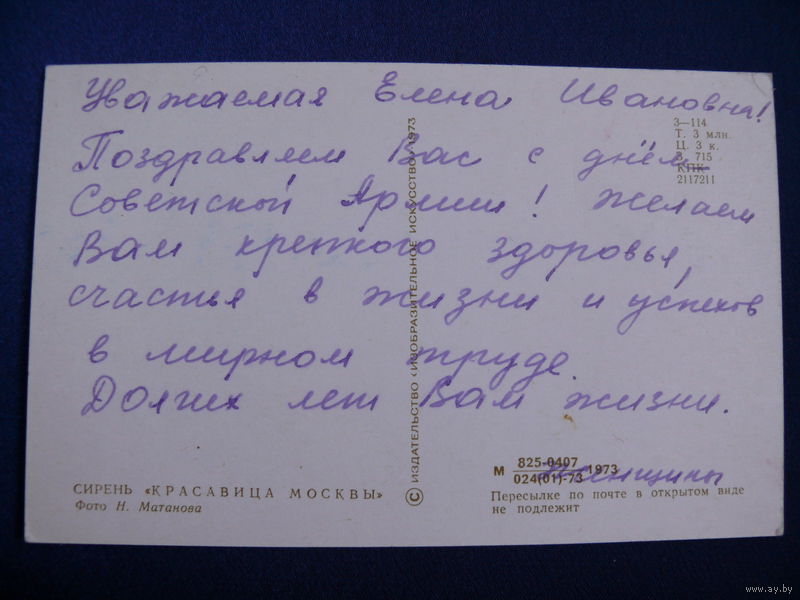 Уважаемая Елена Ивановна!
Поздравляем Вас с днём
Советской Армии! Желаем
Вам крепкого здоровья,
счастья в жизни и успехов
в мирном труде.
Долгих лет Вам жизни.
Женщины
3—114
Т. 3 млн.
Ц. 3 к.
З. 715
КПК
2117211
© ИЗДАТЕЛЬСТВО «ИЗОБРАЗИТЕЛЬНОЕ ИСКУССТВО» 1973
СИРЕНЬ «КРАСАВИЦА МОСКВЫ»
Фото Н. Матанова
М 825-0407 1973
024(01)-73
Пересылке по почте в открытом виде
не подлежит
www.ay.by